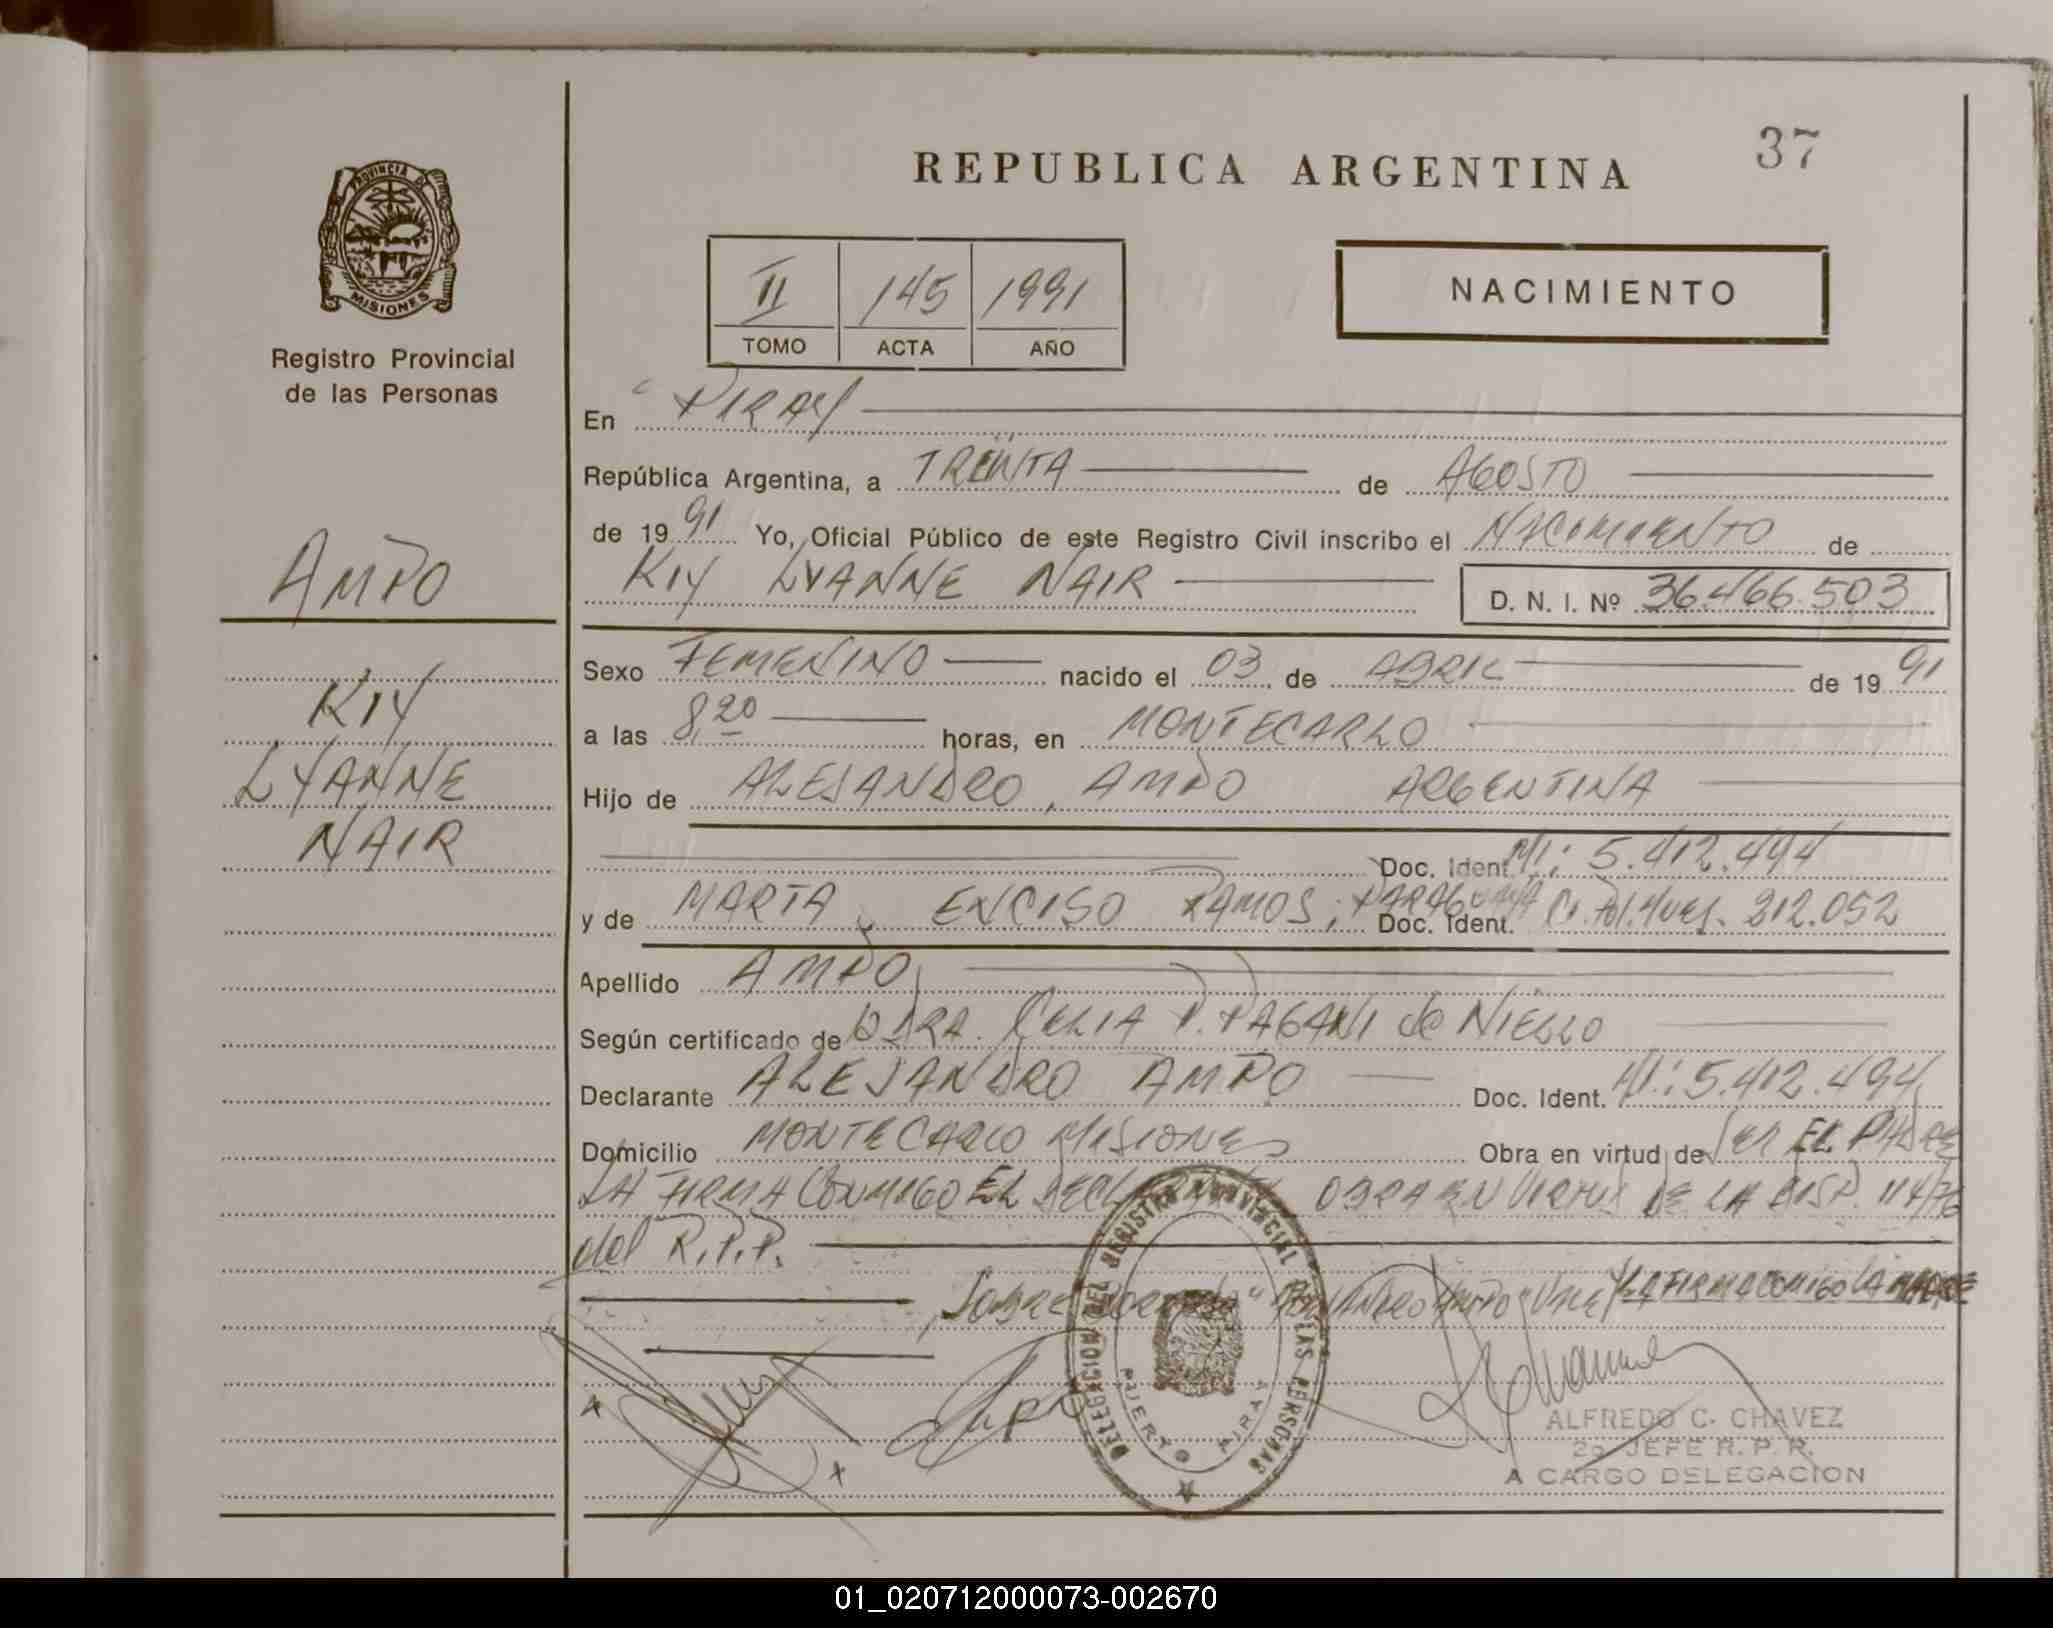 37
REPUBLICA ARGENTINA
PROVINCIA DE
MISIONES
Registro Provincial
de las Personas
II 145 1991
TOMO ACTA AÑO
NACIMIENTO
En PIRAY
República Argentina, a TREINTA de AGOSTO
de 1991 Yo, Oficial Público de este Registro Civil inscribo el NACIMIENTO de
KIY LYANNE NAIR D. N. I. Nº 36.466.503
AMPO
KIY
LYANNE
NAIR
Sexo FEMENINO nacido el 03 de ABRIL de 1991
a las 8,20 horas, en MONTECARLO
Hijo de ALEJANDRO, AMPO ARGENTINA
Doc. Ident. MI: 5.412.494
y de MARTA, ENCISO RAMOS; PARAGUAYA Doc. Ident. C. Pol. 212.052
Apellido AMPO
Según certificado de DRA. CELIA P. PAGANI de NIELLO
Declarante ALEJANDRO AMPO Doc. Ident. MI: 5.412.494
Domicilio MONTECARLO MISIONES Obra en virtud de SER EL PADRE
LA FIRMA CONMIGO EL OBRA EN VIRTUD DE LA DISP. 114/76
del R.P.P.
LA FIRMA COMIGO LA MADRE
DELEGACION DEL REGISTRO PROVINCIAL DE LAS PERSONAS
PUERTO PIRAY
ALFREDO C. CHAVEZ
2o JEFE R. P. P.
A CARGO DELEGACION
01_020712000073-002670